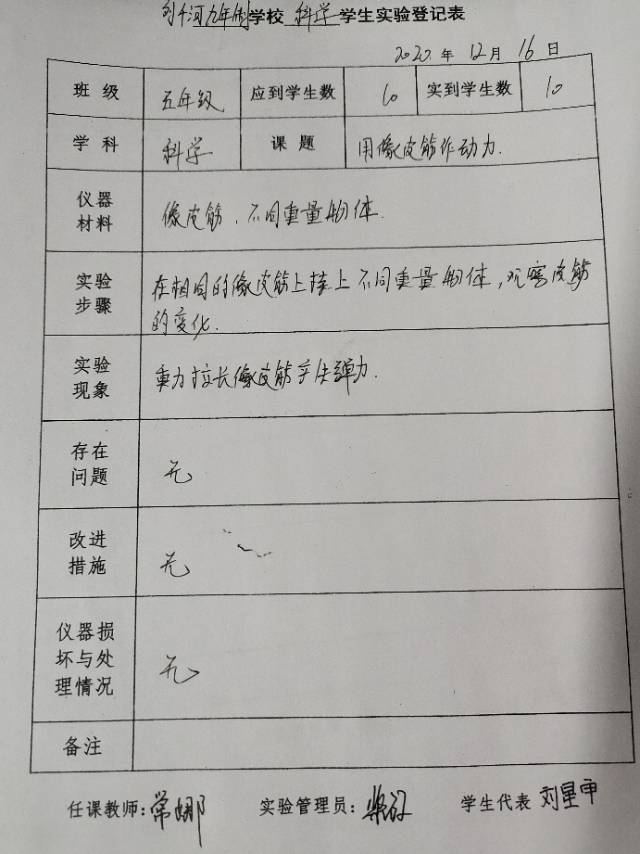 九年制学校 科学 学生实验登记表
2020 年 12 月 16 日
班级 五年级 应到学生数 10 实到学生数 10
学科 科学 课题 用像皮筋作动力.
仪器
材料
像皮筋、不同重量物体.
实验
步骤
在相同的像皮筋上挂上不同重量物体,观察皮筋
的变化.
实验
现象
重力拉长像皮筋产生弹力.
存在
问题
无
改进
措施
无
仪器损
坏与处
理情况
无
备注
任课教师:常娜 实验管理员: 学生代表 刘星甲